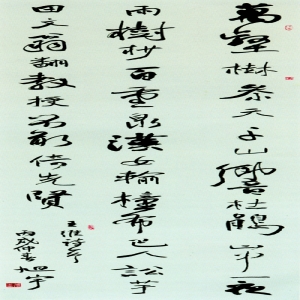 萬壑樹參天千山響杜鵑山中一夜
雨樹杪百重泉漢女輸橦布巴人訟芋
田文翁翻教授不敢倚先賢
王維詩
丙戌仲春旭宇